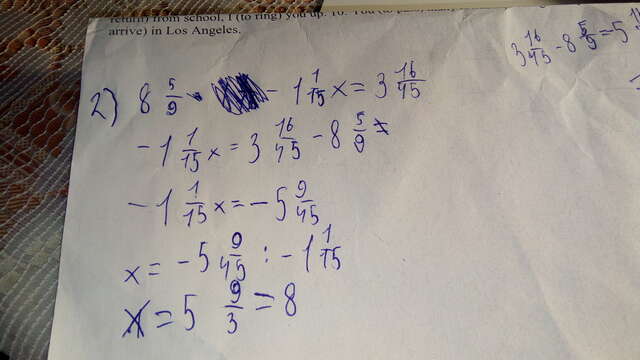 return) from school, I (to ring) you up. 10. You (to
arrive) in Los Angeles.
3 16/45 - 8 5/9 = 5
2) 8 5/9 - 1 1/15 x = 3 16/45
- 1 1/15 x = 3 16/45 - 8 5/9 =
- 1 1/15 x = - 5 9/45
x = - 5 9/45 : - 1 1/15
x = 5 9/3 = 8